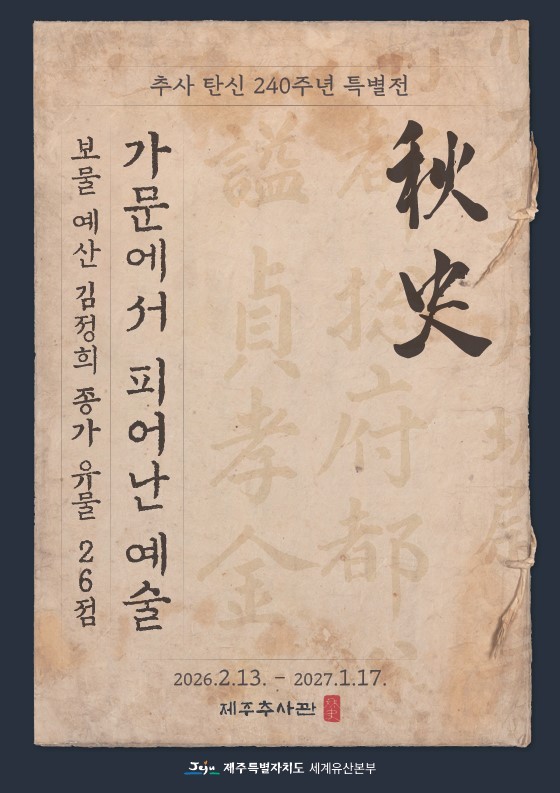 추사 탄신 240주년 특별전
秋史
가문에서 피어난 예술
보물 예산 김정희 종가 유물 26점
諡貞孝金
摠府都
2026.2.13. - 2027.1.17.
제주추사관
Jeju 제주특별자치도 세계유산본부